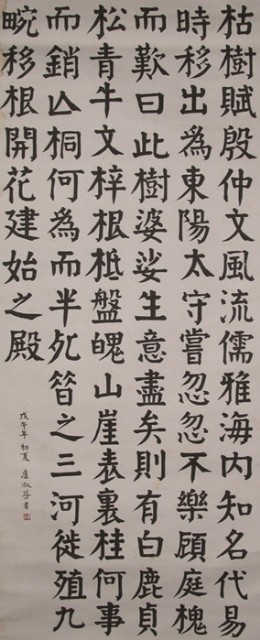 枯樹賦殷仲文風流儒雅海内知名代易
時移出為東陽太守嘗忽忽不樂顧庭槐
而歎曰此樹婆娑生意盡矣則有白鹿貞
松青牛文梓根柢盤魄山崖表裏桂何事
而銷亾桐何為而半死昔之三河徙殖九
畹移根開花建始之殿
戊午年初夏 書